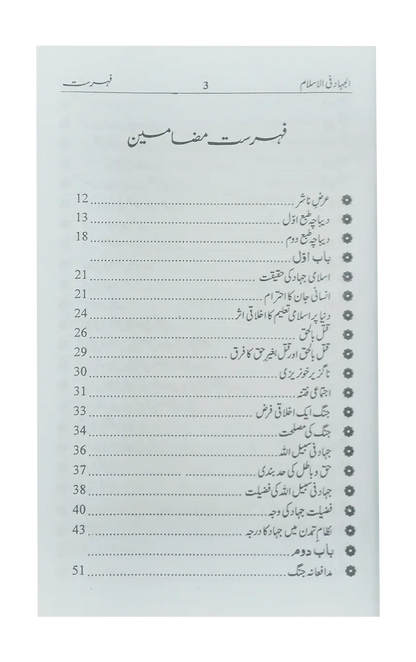 الجہاد فی الاسلام 3 فہرست
فہرست مضامین
عرضِ ناشر 12
دیباچہ طبع اوّل 13
دیباچہ طبع دوم 18
باب اوّل
اسلامی جہاد کی حقیقت 21
انسانی جان کا احترام 21
دنیا پر اسلامی تعلیم کا اخلاقی اثر 24
قتل بالحق 26
قتل بالحق اور قتل بغیر حق کا فرق 29
ناگزیر خونریزی 30
اجتماعی فتنہ 31
جنگ ایک اخلاقی فرض 33
جنگ کی مصلحت 34
جہاد فی سبیل اللہ 36
حق و باطل کی حد بندی 37
جہاد فی سبیل اللہ کی فضیلت 38
فضیلت جہاد کی وجہ 40
نظامِ تمدن میں جہاد کا درجہ 43
باب دوم
مدافعانہ جنگ 51